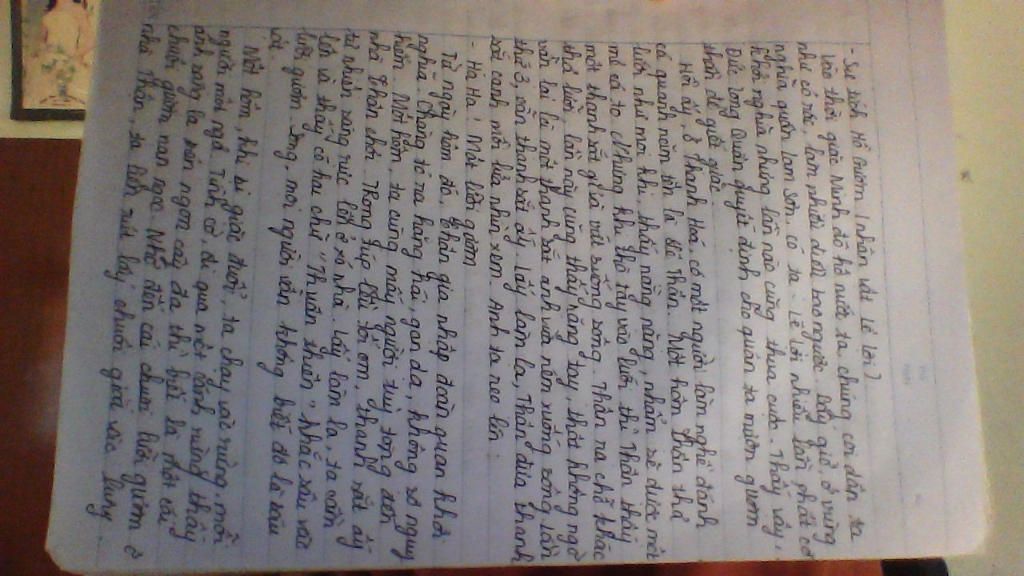 - Sự tích Hồ Gươm (nhân vật Lê Lợi).
Vào thời giặc Minh đô hộ nước ta, chúng coi dân ta
như cỏ rác, làm nhiều điều bạo ngược. Bấy giờ, ở vùng
nghĩa quân Lam Sơn, có ta - Lê Lợi nhiều lần phất cờ
khởi nghĩa nhưng lần nào cũng thua cuộc. Thấy vậy,
Đức Long Quân quyết định cho quân ta mượn gươm
thần để giết giặc.
Hồi ấy, ở Thanh Hoá, có một người làm nghề đánh
cá quanh năm tên là Lê Thận. Một hôm Thận thả
lưới như mọi khi, thấy nặng nặng, nhầm sẽ được mẻ
cá to. Nhưng khi thò tay vào lưới, thì Thận thấy
một thanh sắt, giơ vứt xuống sông. Thận ra chỗ khác
thả lưới, lần này cũng thấy nặng tay, thật không ngờ
vẫn lại là một thanh sắt, anh vừa ném xuống sông. Lần
thứ 3, vẫn thanh sắt ấy. Lấy làm lạ, Thận đưa thanh
sắt cạnh mồi lửa nhìn xem. Anh ta reo lên:
- Ha Ha! Một lưỡi gươm
Từ ngày hôm đó, Thận gia nhập đoàn quân khởi
nghĩa. Chàng tỏ ra hăng hái, gan dạ, không sợ nguy
hiểm. Một hôm, ta cùng mấy người tuỳ tòng đến
nhà Thận chơi. Trong túp lều tối om, thanh sắt ấy
tự nhiên sáng rực lên ở xó nhà. Lấy làm lạ, ta cầm
lên và thấy có hai chữ "Thuận Thiên" khắc sâu vào
lưỡi gươm. Song, mọi người vẫn không biết đó là báu
vật.
Một hôm, khi bị giặc đuổi, ta chạy vào rừng, mỗi
người một ngả. Tình cờ, đi qua một cánh rừng thấy
ánh sáng lạ trên ngọn cây đa thì biết là một cái
chuôi gươm nạm ngọc. Nhớ đến cái chuôi lưỡi gươm ở
nhà Thận, ta liền rút lấy chuôi giắt vào lưng.